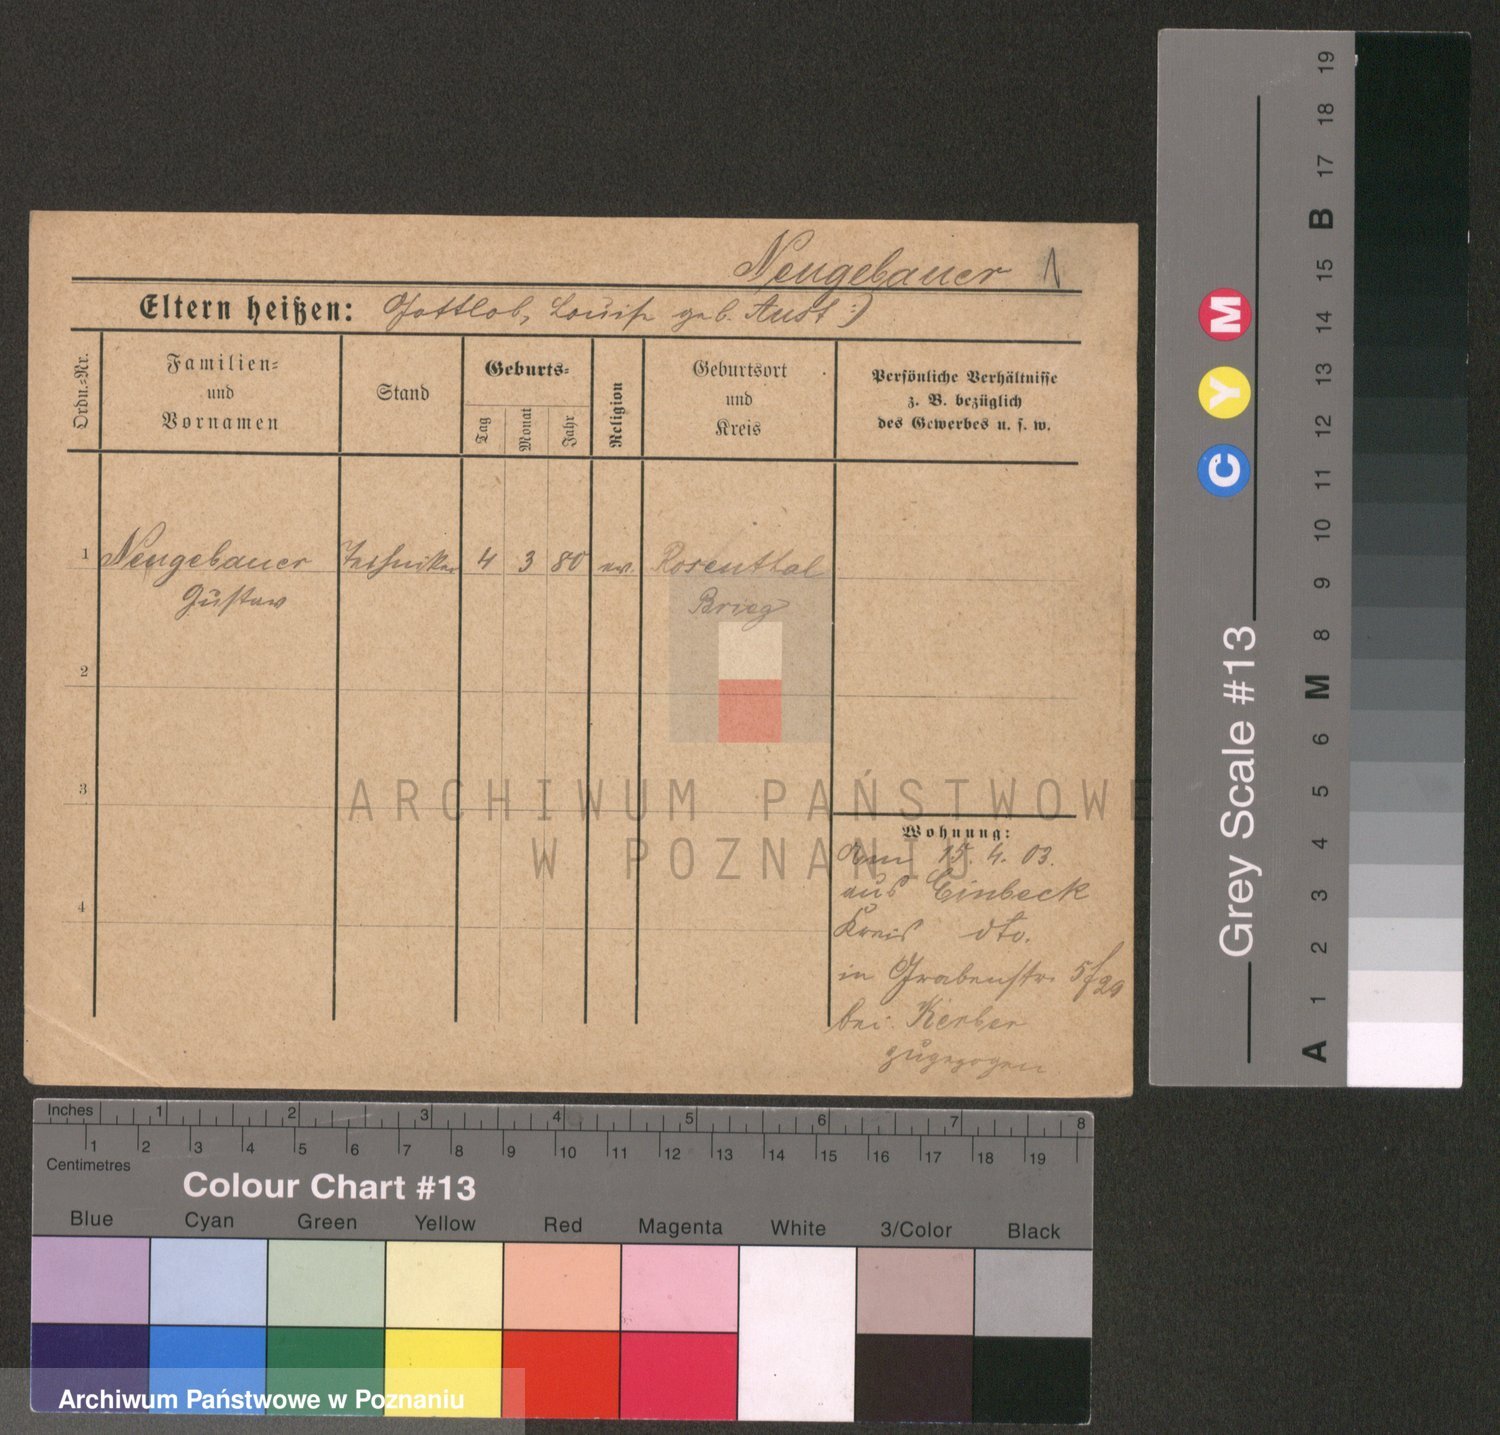 Neugebauer
Eltern heißen: Gottlob, Louise geb. Aust :)
Ordn.-Nr.
Familien-
und
Vornamen
Stand
Geburts-
Tag
Monat
Jahr
Religion
Geburtsort
und
Kreis
Persönliche Verhältnisse
z. B. bezüglich
des Gewerbes u. s. w.
1 Neugebauer Techniker 4 3 80 ev. Rosenthal
Gustav Brieg
2
3
4
Wohnung:
Am 15. 4. 03.
aus Einbeck
Kreis dto.
in Grabenstr.
bei Kerber
zugezogen
ARCHIWUM PAŃSTWOWE
W POZNANIU
Inches 1 2 3 4 5 6 7 8
1 2 3 4 5 6 7 8 9 10 11 12 13 14 15 16 17 18 19
Centimetres
Colour Chart #13
Blue Cyan Green Yellow Red Magenta White 3/Color Black
Archiwum Państwowe w Poznaniu
Grey Scale #13
C Y M
A 1 2 3 4 5 6 M 8 9 10 11 12 13 14 15 B 17 18 19